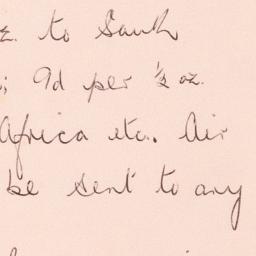 z. to South
; 9d per ½ oz.
Africa etc. Air
be sent to any